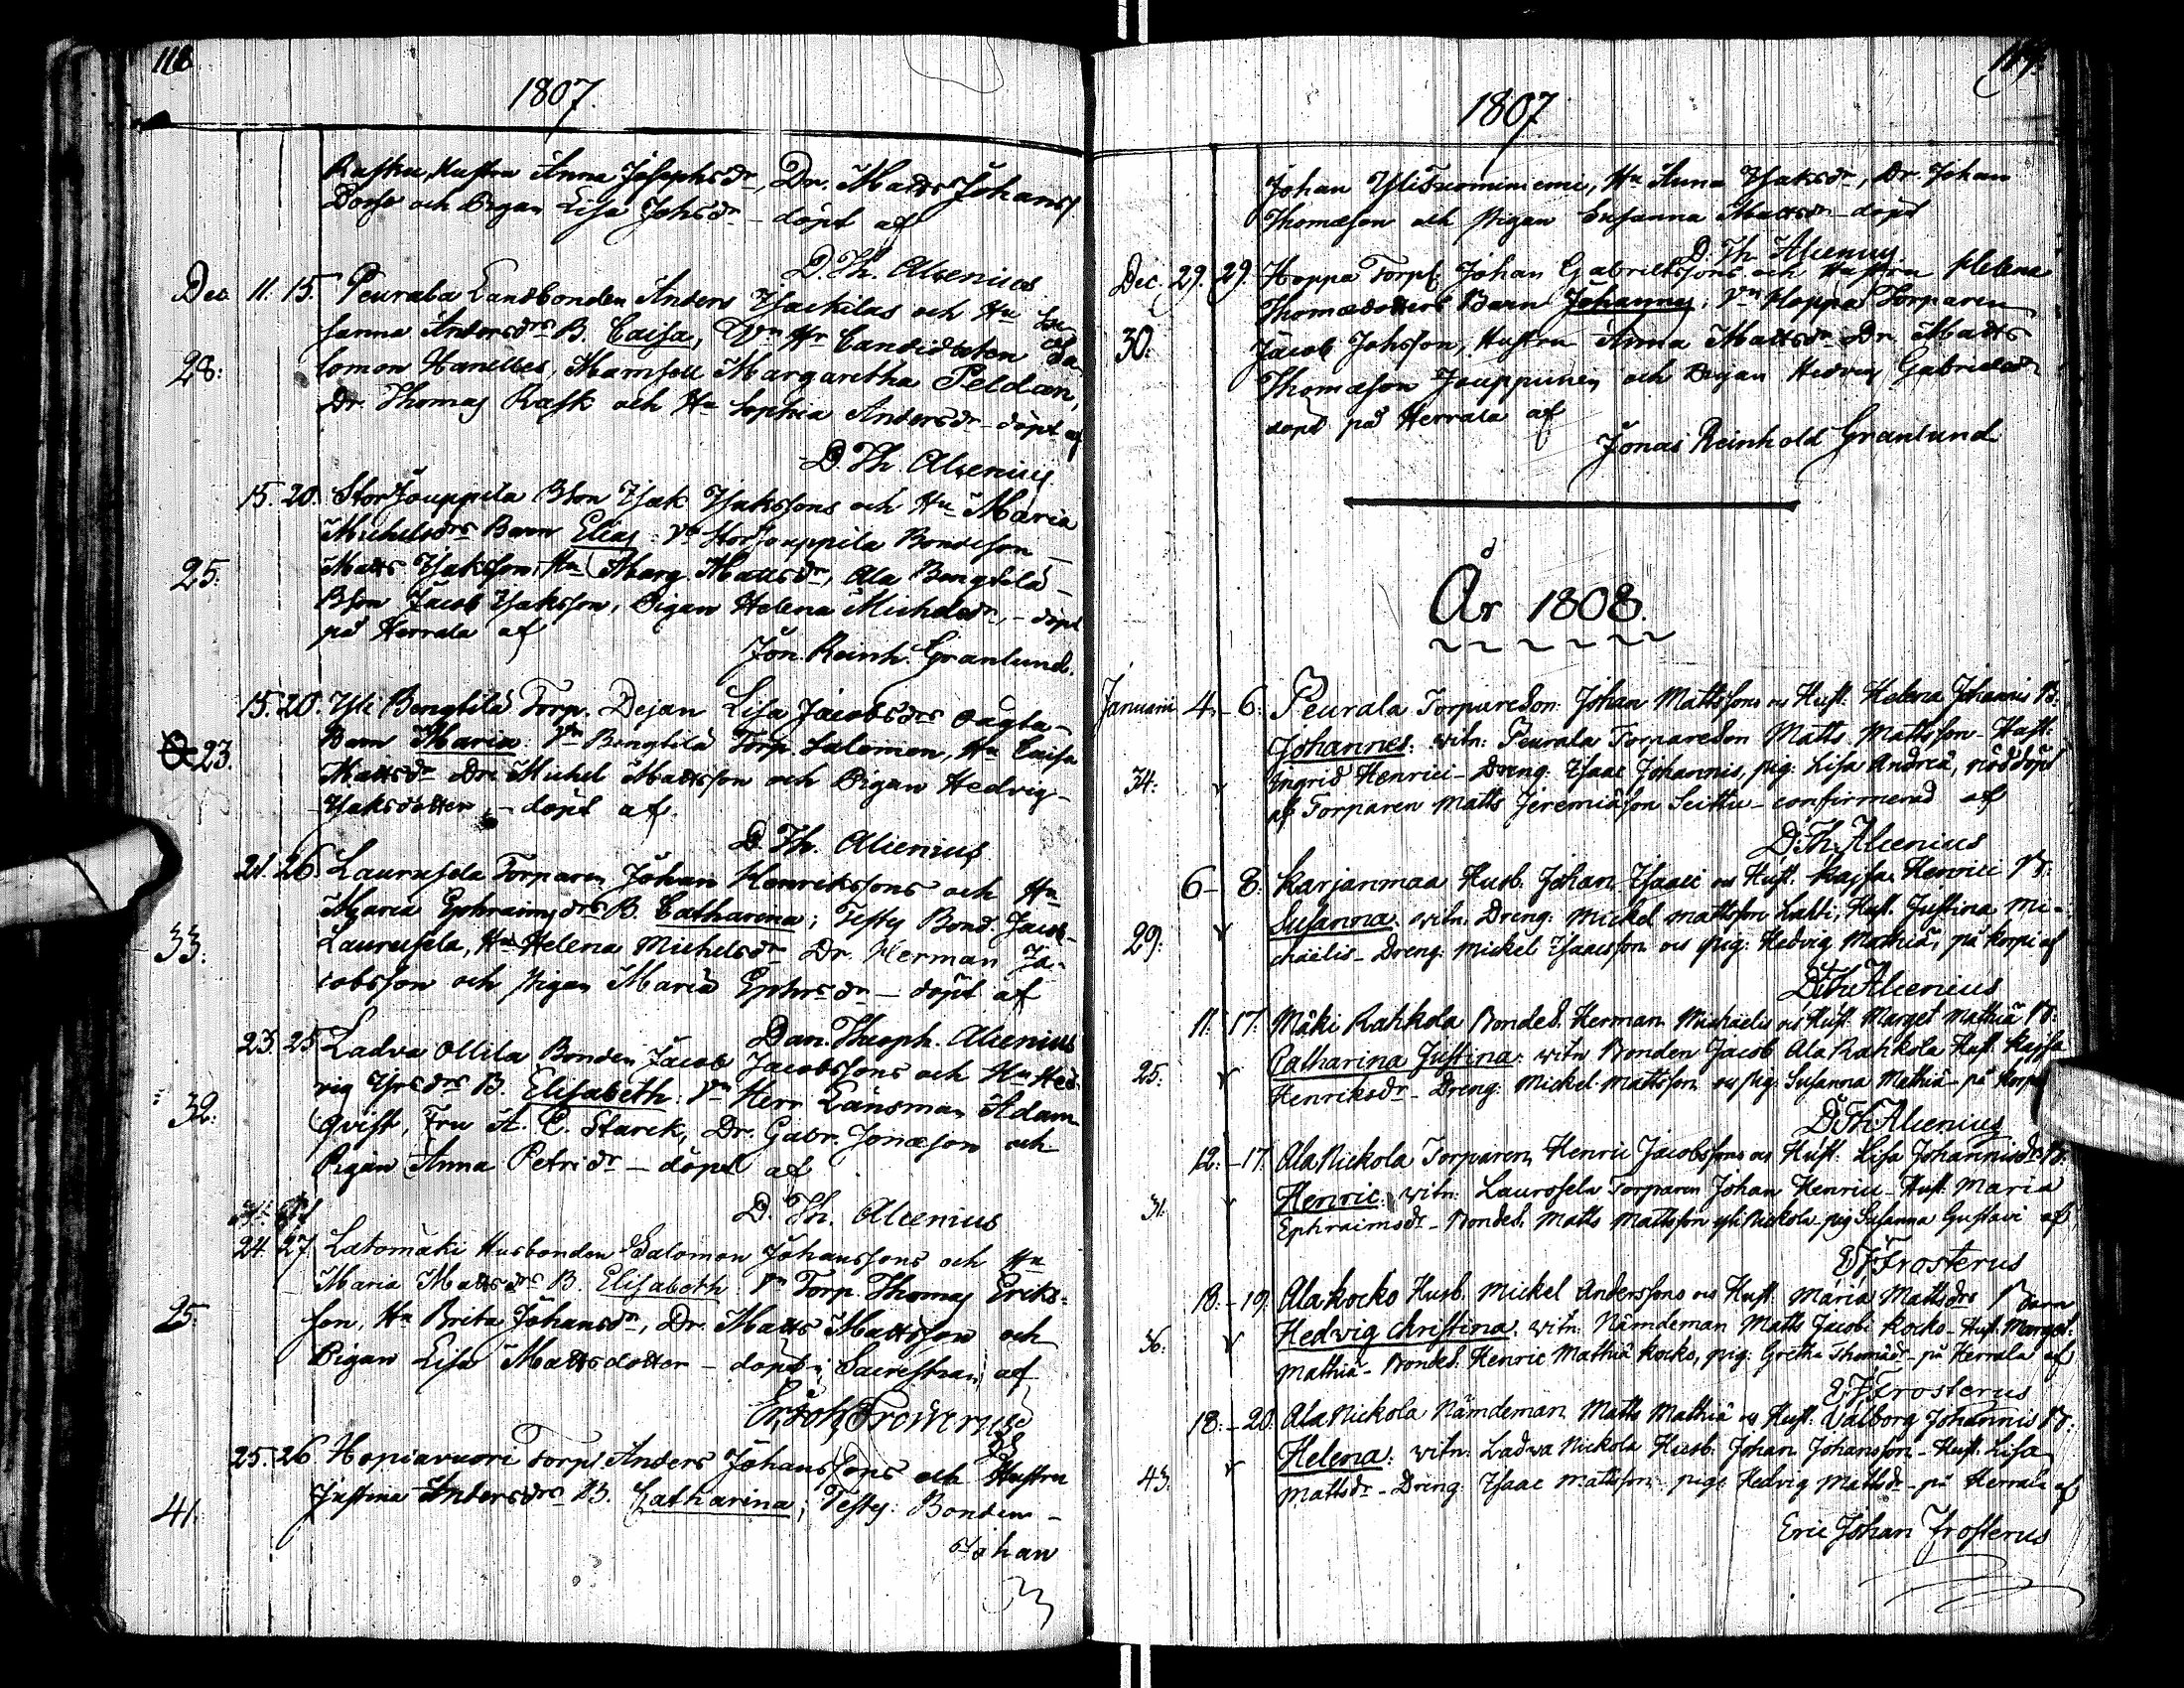 118
1807.
Rasku, Hustru Anna Josephsdr, Dr. Matts Johans
Dorse och Pigan Lisa Johsdr – döpt af
D. Th. Alcenius
Dec. 11. 15. Peurala Landbonden Anders Isackilas och Hu Su-
sanna Andersdrs B. Caisa, Vn Hr Candidaten Sa-
28: lomon Hanelles, Mamsell Margaretha Peldan,
Dr. Thomas Rask och Hu Sophia Andersdr – döpt af
D. Th. Alcenius
15. 20. Stor Jouppila Bson Isak Isakssons och Hu Maria
Michelsdrs Barn Elias: Vn Stor Jouppila Bondeson
25: Matts Isaksson, Hu Marg. Mattsdr, Ala Bengtilä
Bson Jacob Isaksson, Pigan Helena Michelsdr, – döpt
på Herrala af
Jon. Reinh. Granlund.
15. 20. Yli Bengtilä Torp. Dejan Lisa Jacobsdrs oägta
23. Barn Maria: Vn Bengtilä Torp. Salomon, Hu Caisa
Mattsdr Dr. Michel Mattsson och Pigan Hedvig
Isaksdotter, – döpt af.
D. Th. Alcenius
21. 26. Laurusela Torparen Johan Henrikssons och Hu
Maria Ephraimsdrs B. Catharina; Testes Bond. Jacob
33. Laurusela, Hu Helena Michelsdr Dr. Herman Ja-
cobsson och Pigan Maria Ephrsdr – döpt af
Dan. Theoph. Alcenius
23. 25 Ladva Ollila Bonden Jacob Jacobssons och Hu Hed-
vig Yrsdrs B. Elisabeth: Vn Herr Länsman Adam
32. Qvist, Fru A. C. Starck, Dr. Gabr. Jonæson och
Pigan Anna Petridr – döpt af
D. Th. Alcenius
24. 27. Latomäki Husbonden Salomon Johanssons och Hu
Maria Mattsdrs B. Elisabeth: Vn Torp. Thomas Eriks-
25. son, Hu Brita Johansdr, Dr. Matts Mattsson och
Pigan Lisa Mattsdotter – döpt i Sacrestian af
Er. Joh. Frosterus
25. 26 Hopiavuori Torp Anders Johanssons och Hustru
41. Justina Andersdrs B. Catharina; Testes: Bonden
Johan
1807
Johan Yli Tuominiemi, Hu Anna Isaksdr, Dr. Johan
Thomæson och Pigan Susanna Mattsdr – döpt
D. Th. Alcenius
Dec. 29. 29. Hoppa Torp. Johan Gabrielssons och Hustru Helena
Thomædotters Barn Johannes; Vn Hoppa Torparen
30. Jacob Johsson, Hustru Anna Mattsdr Dr. Matts
Thomæson Jouppinen och Pigan Hedvig Gabrielsdr
döpt på Herrala af
Jonas Reinhold Granlund
År 1808.
Januarii 4. – 6. Peurala Torpareson Johan Mattssons os Hust. Helena Johannis B:
Johannes: witn: Peurala Torpareson Matts Mattsson – Hust:
34: Ingrid Henrici – Dreng: Isaac Johannis, pig: Lisa Andreä, nöddöpt
af Torparen Matts Jeremiäson Seittu – confirmerad af
D. Th. Alcenius
6 – 8. Karjanmaa Husb. Johan Isaaci os Hust. Kajsa Henrici B:
Susanna: witn. Dreng: Mickel Mattsson Latti, Hust. Justina Mi-
29: chaëlis – Dreng. Mickel Isaacsson os pig: Hedvig Mathiä, på Korpi af
D. Th. Alcenius
11. 17. Mäki Rahkola Bondes. Herman Michaëlis os Hust. Marget Mathiä B:
Catharina Justina: witn Bonden Jacob Ala Rahkola Hust. Kajsa
25: Henriksdr – Dreng: Mickel Mattsson os pig Susanna Mathiä – på Korpi
D. Th. Alcenius
12. – 17. Ala Nickola Torparen Henric Jacobssons os Hust. Lisa Johannisdrs B.
Henric: witn: Laurosela Torparen Johan Henrici – Hust. Maria
31. Ephraimsdr – Bondes. Matts Mattsson yli Nickola – pig Susanna Gustavi af
E J Frosterus
18. – 19. Ala Kocko Husb. Mickel Anderssons os Hust. Maria Mattsdrs Barn
Hedvig Christina: witn. Nämdeman Matts Jacobi Kocko – Hust. Marget:
36. Mathiä – Bondes. Henric Mathiä Kocko, pig: Greta Thomädr – på Herrala af
E J Frosterus
18. – 20. Ala Nickola Nämdeman Matts Mathiä os Hust: Valborg Johannis B:
Helena: witn: Ladwa Nickola Husb. Johan Johansson – Hust. Lisa
43. Mattsdr – Dreng Isaac Mattsson pig: Hedvig Mattsdr – på Herrala af
Eric Johan Frosterus